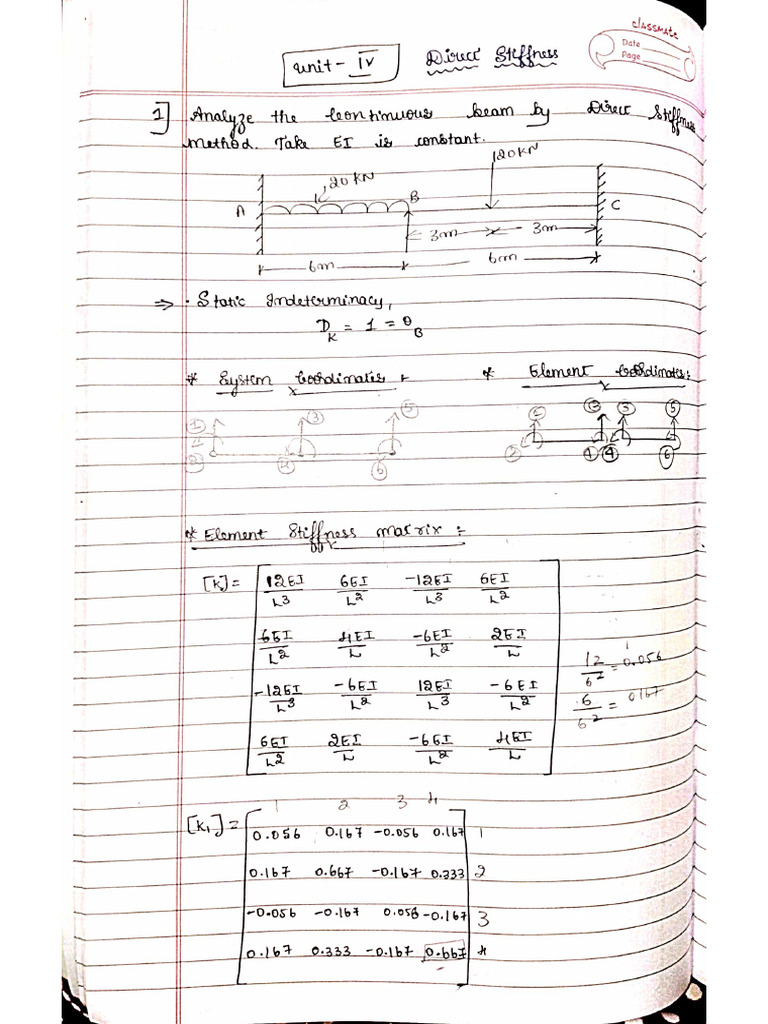 classmate
Date
Page
Unit - IV Direct Stiffness
1] Analyze the Continuous beam by Direct Stiffness
method. Take EI is constant.
120KN
20KN
A B C
3m 3m
6m 6m
⇒ · Static Indeterminacy,
D_K = 1 = θ_B
* System Coordinates :- * Element Coordinates :-
① ③ ⑤ ③ ⑤
② ④ ⑥ ② ④ ⑥
* Element Stiffness matrix :-
[K] = 12EI/L³ 6EI/L² -12EI/L³ 6EI/L²
6EI/L² 4EI/L -6EI/L² 2EI/L
12/6² = 0.056
-12EI/L³ -6EI/L² 12EI/L³ -6EI/L²
6/6² = 0.167
6EI/L² 2EI/L -6EI/L² 4EI/L
1 2 3 4
[K₁] = 0.056 0.167 -0.056 0.167 1
0.167 0.667 -0.167 0.333 2
-0.056 -0.167 0.056 -0.167 3
0.167 0.333 -0.167 0.667 4